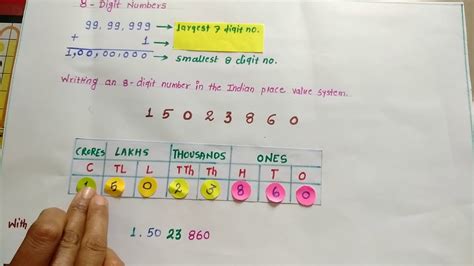 8 - Digit Numbers
99,99,999 → largest 7 digit no.
+ 1 →
1,00,00,000 → smallest 8 digit no.
Writting an 8-digit number in the Indian place value system.
1 5 0 2 3 8 6 0
CRORES LAKHS THOUSANDS ONES
C TL L TTh Th H T O
1 5 0 2 3 8 6 0
With
1.50 23 860